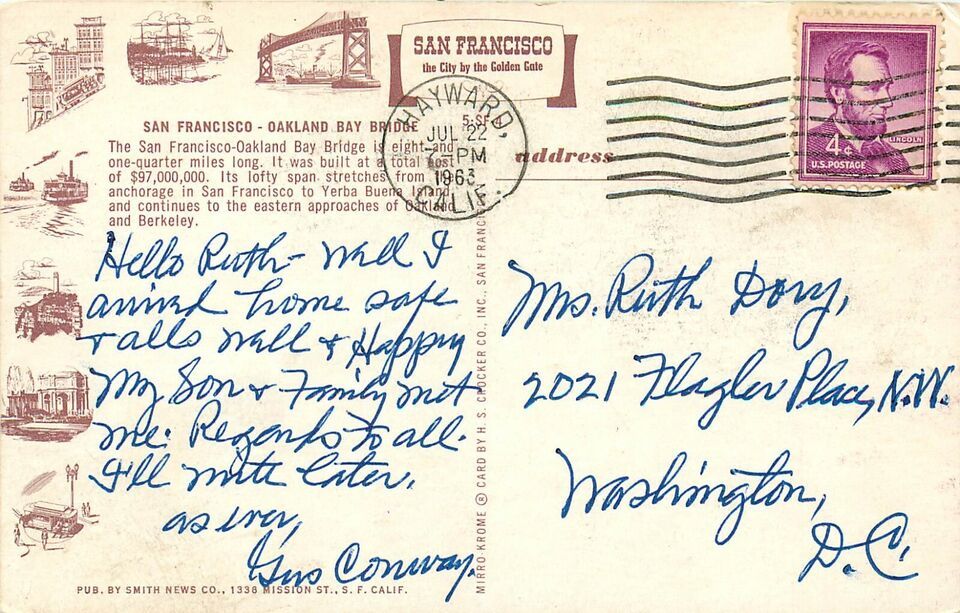 SAN FRANCISCO
the City by the Golden Gate
5-SF
HAYWARD,
JUL 22
PM
1963
CALIF.
address
LINCOLN
4¢
U.S. POSTAGE
SAN FRANCISCO - OAKLAND BAY BRIDGE
The San Francisco-Oakland Bay Bridge is eight and
one-quarter miles long. It was built at a total cost
of $97,000,000. Its lofty span stretches from the
anchorage in San Francisco to Yerba Buena Island
and continues to the eastern approaches of Oakland
and Berkeley.
Hello Ruth - Well I
arrived home safe
+ alls well + Happy
My Son + Family met
me. Regards to all.
I'll write later.
as ever,
Gus Conway.
PUB. BY SMITH NEWS CO., 1338 MISSION ST., S. F. CALIF.
MIRRO-KROME ® CARD BY H. S. CROCKER CO., INC., SAN FRANCISCO
Ms. Ruth Dory,
2021 Flagler Place, N.W.
Washington,
D.C.